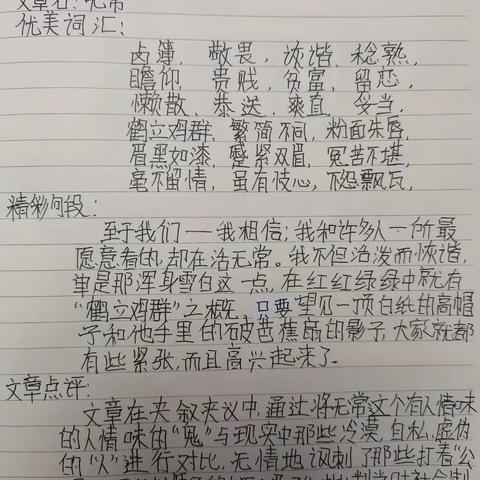 文章名：无常
优美词汇：
卤簿、敬畏、诙谐、稔熟，
瞻仰、贵贱、贫富、留恋，
懒散、恭送、爽直、妥当，
鹤立鸡群、繁简不同、粉面朱唇，
眉黑如漆、蹙紧双眉、冤苦不堪，
毫不留情、虽有忮心、不怨飘瓦，
精彩句段：
至于我们——我相信；我和许多人——所最
愿意看的，却在活无常。我不但活泼而恢谐，
单是那浑身雪白这一点，在红红绿绿中就有
“鹤立鸡群”之概。只要望见一顶白纸的高帽
子和他手里的破芭蕉扇的影子，大家就都
有些紧张，而且高兴起来了.
文章点评：
文章在夹叙夹议中，通过将无常这个有人情味
的人情味的“鬼”与现实中那些冷漠，自私、虚伪
的“人”进行对比，无情地讽刺了那些打着“公